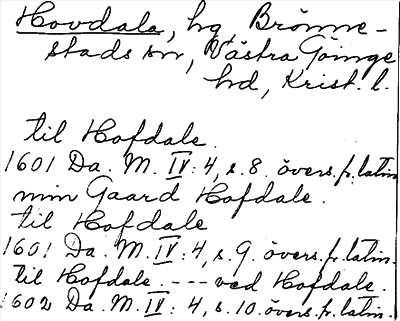 Hovdala, hg, Brönne-
stads sn, Västra Göinge
hd, Krist. l.
til Hofdale.
1601 Da. M. IV: 4, s. 8. övers. fr. latin
min Gaard Hofdale.
til Hofdale
1601 Da. M. IV: 4, s. 9. övers. fr. latin.
til Hofdale --- ved Hofdale.
1602 Da. M. IV: 4, s. 10. övers. fr. latin.